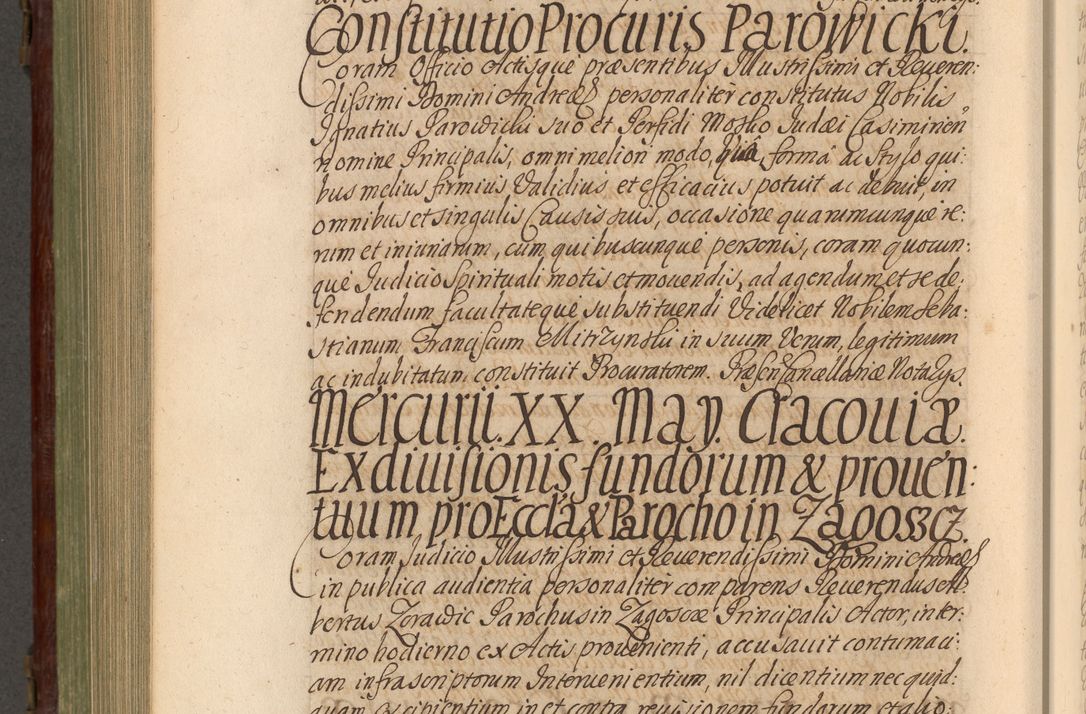 Constitutio Procuris Parowicki.
Coram Officio Actisque præsentibus Illustrissimi et Reueren:
dissimi Domini Andreæ personaliter constitutus Nobilis
Ignatius Parowicki suo et Perfidi Mosko Judæi Casimirien
nomine Principalis, omni meliori modo, quâ, formâ ac stylo qui:
bus melius firmius Validius et efficacius potuit ac debuit, in
omnibus et singulis Causis suis, occasione quarumcunque re:
rum et iniuriarum, cum quibuscunque personis, coram quocun:
que Judicio Spirituali motis et mouendis, ad agendum et se de:
fendendum facultateque substituendi Videlicet Nobilem Seba:
stianum Franciscum Mitrzynski in suum Verum, legitimum
ac indubitatum constituit Procuratorem. Præsen Cancellariæ Notarys.
Mercurii. XX. May. Cracouiæ.
Ex diuisionis fundorum & prouen:
tuum pro Eccla & Parocho in Zagoszcz.
Coram Judicio Illustrissimi et Reuerendissimi Domini Andreæ
in publica audientia personaliter comparens Reuerendus Al:
bertus Zorawic Parochus in Zagoscæ Principalis Actor, in ter:
mino hodierno ex Actis prouenienti, accusauit contumaci:
am infrascriptorum Interuenientium, nil dicentium nec quid:
quam excipientium in et contra reuisionem fundorum et alio: